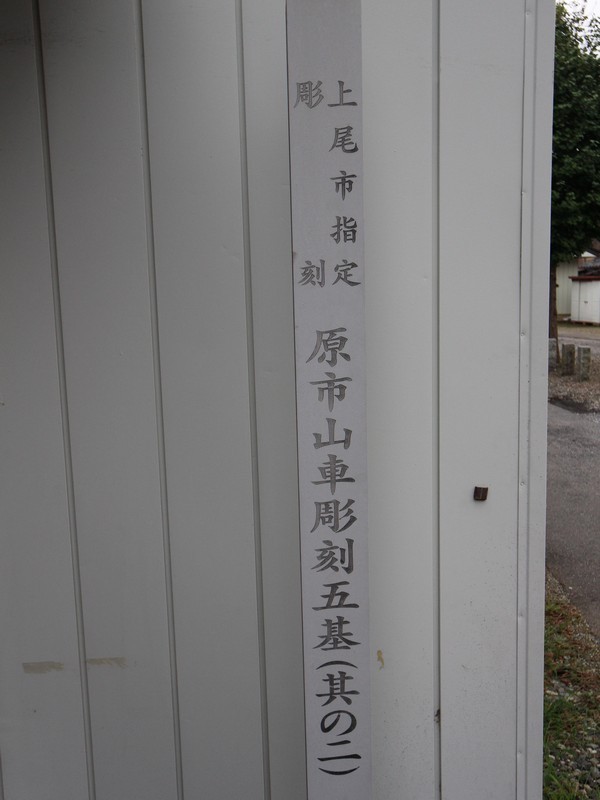 上尾市指定
彫刻
原市山車彫刻五基(其の二)